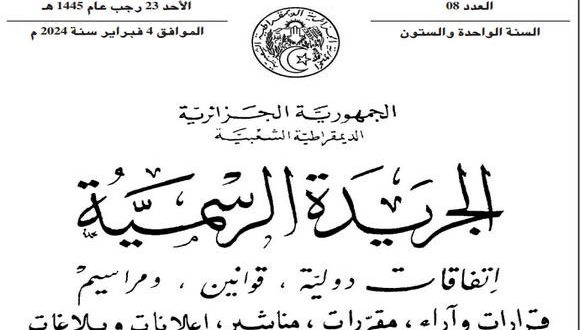 العدد 08
الأحد 23 رجب عام 1445 هـ
السنة الواحدة والستون
الموافق 4 فبراير سنة 2024 م
الجمهورية الجزائرية
الديمقراطية الشعبية
الجريدة الرسمية
إتفاقات دولية ، قوانين ، ومراسيم
قرارات وآراء ، مقررات ، مناشير ، إعلانات وبلاغات